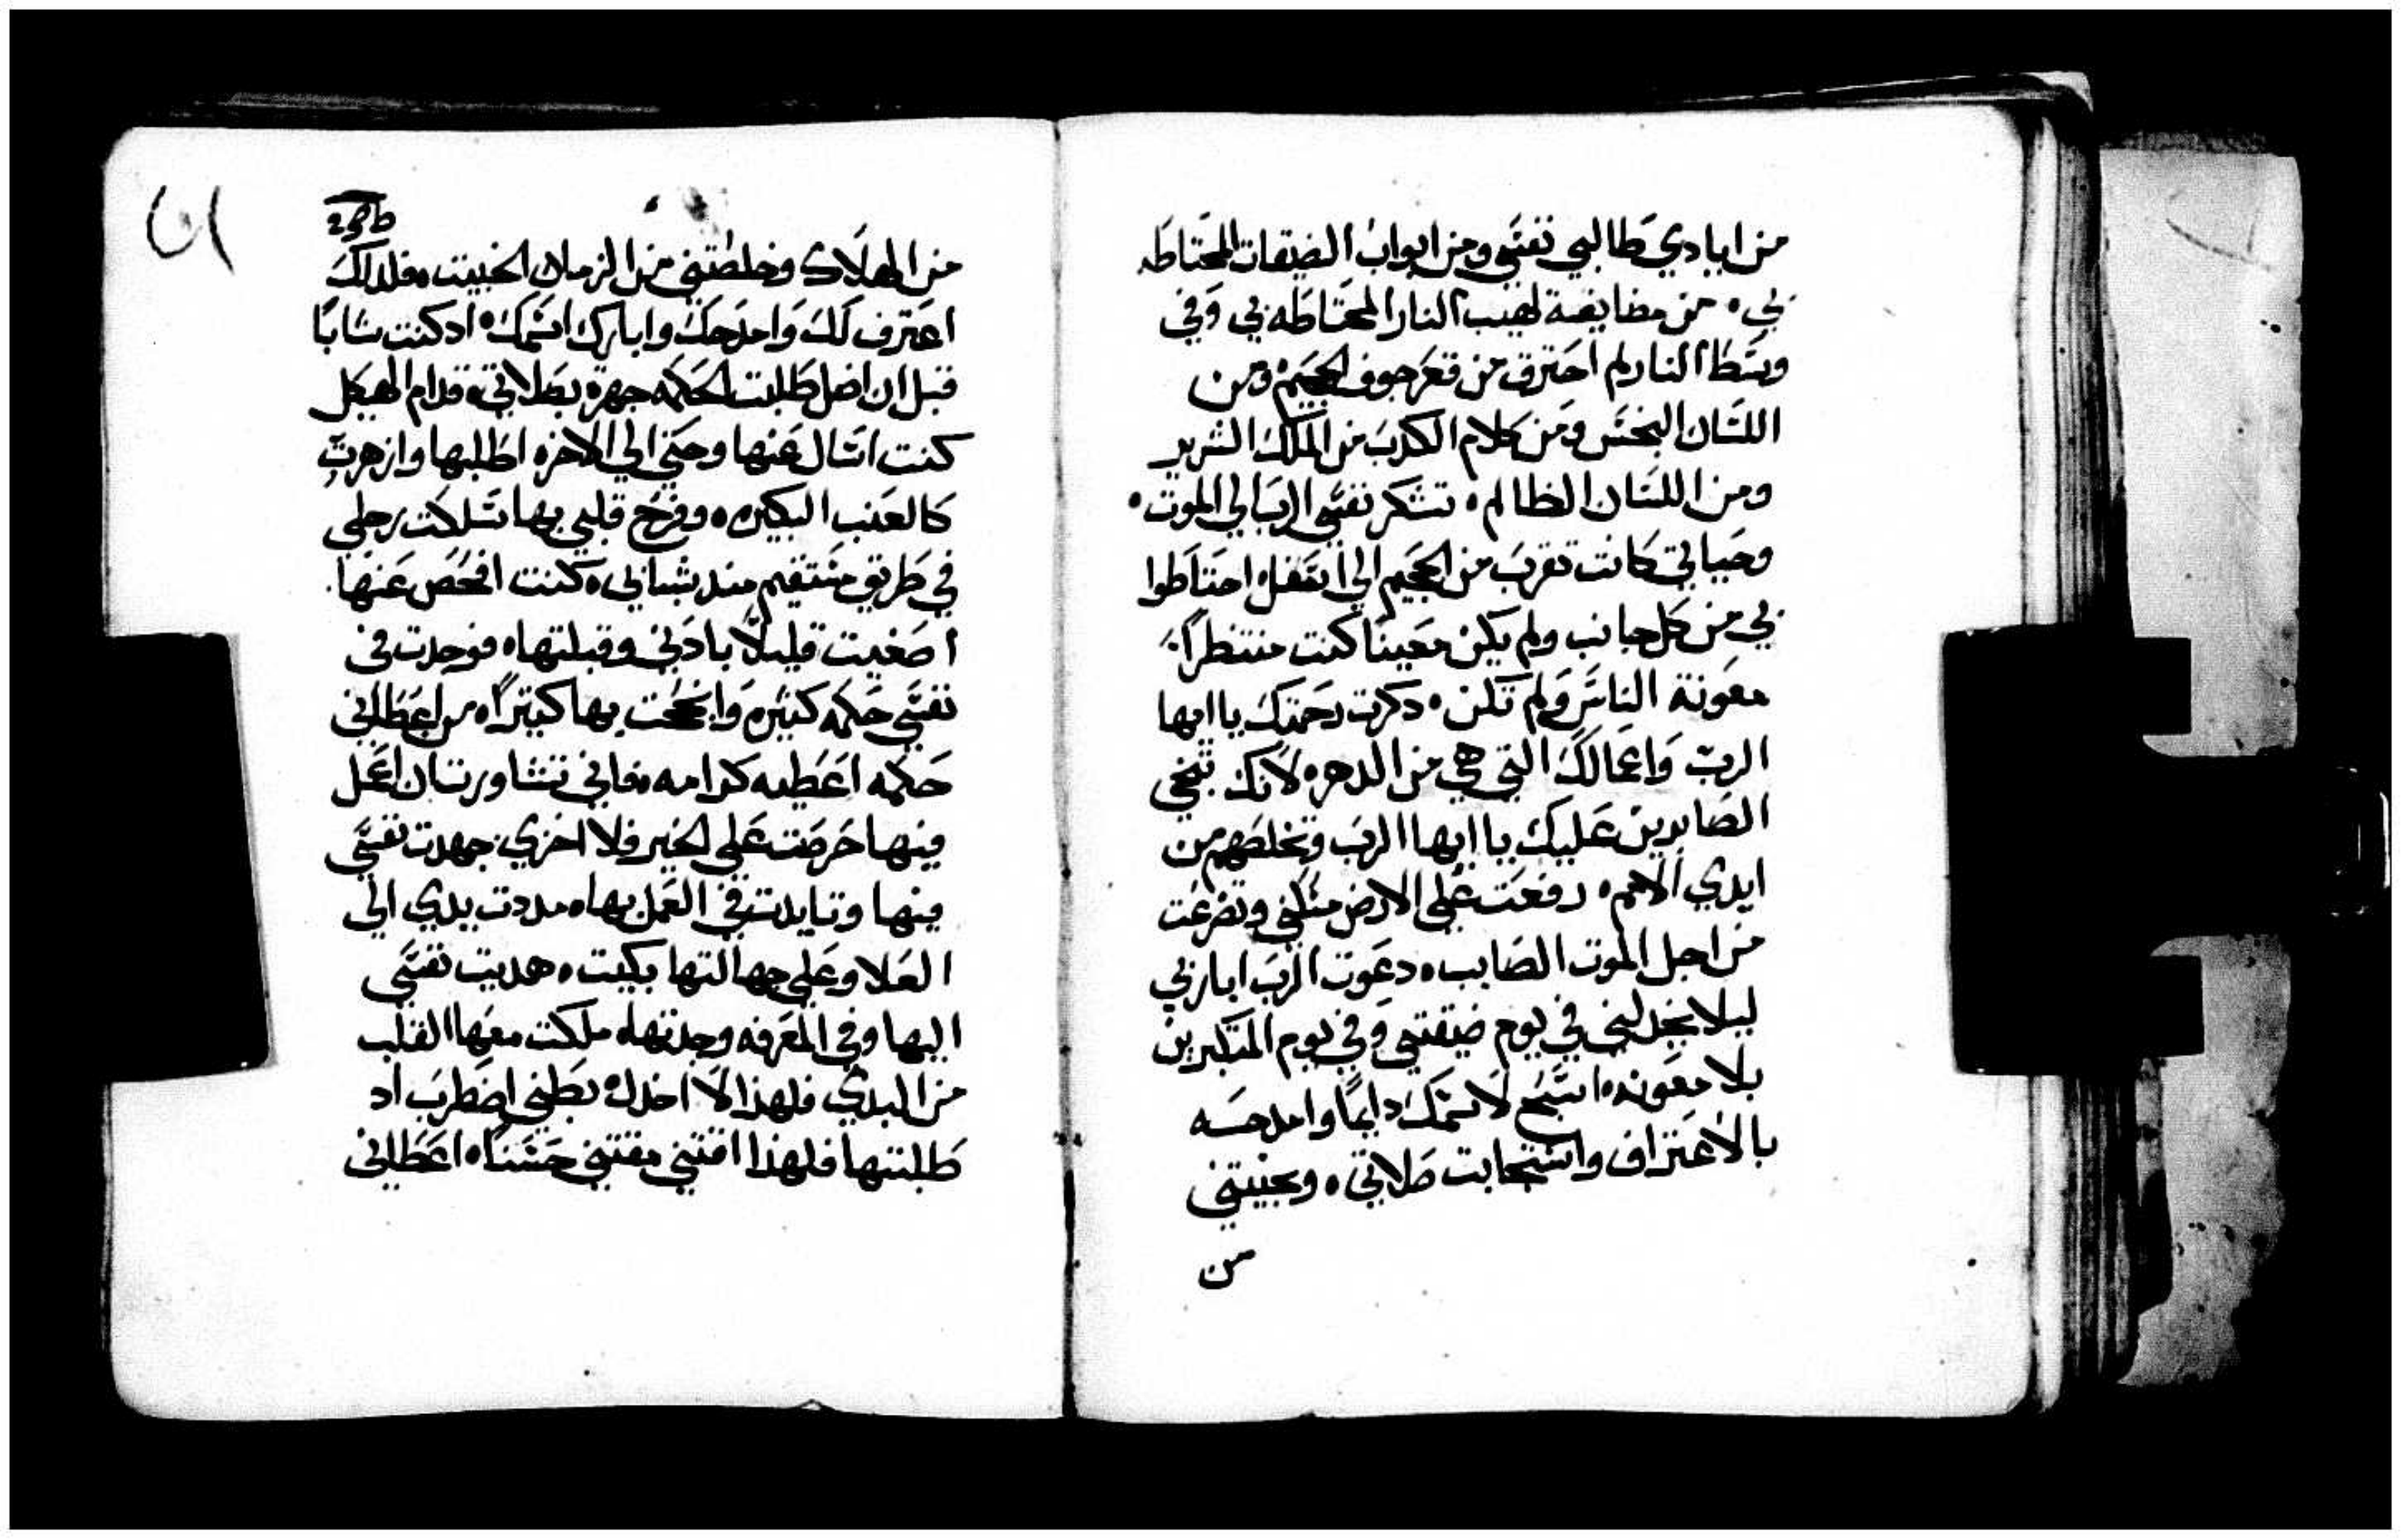 من ايادي طالبي نفسي ومن ابواب الضيقات المحتاطه
بي ه من مضايقة لهيب النار المحتاطه بي وفي
وسط النار لم احترق من قعر جوف الجحيم ومن
اللسان النجس ومن كلام الكدب من الملك الشرير
ومن اللسان الظالم ه تشكر نفسي الرب الي الموت ه
وحياتي كانت تقرب من الجحيم الي اسفل احتاطوا
بي من كل جانب ولم يكن معينا كنت منتظراً
معونة الناس ولم تكن ه دكرت رحمتك يا ايها
الرب واعمالك التي هي من الدهر ه لانك تنجي
الصابرين عليك يا ايها الرب وتخلصهم من
ايدي الامم ه رفعت علي الارض مسكني وتضرعت
من اجل الموت الصايب ه دعوت الرب ابا ربي
ليلا يخدلني في يوم ضيقتي وفي يوم المتكبرين
بلا معونه ه اسبح لاسمك دايماً وامدحسه
بالاعتراف واستجابت صلاتي ه ونجيتني
من
من الهلاك وخلصتني من الزمان الخبيت ه فلدلك
اعترف لك وامدحك وابارك اسمك ه اد كنت شاباً
قبل ان اضل طلبت الحكمه جهرة بصلاتي ه قدام الهيكل
كنت اسال عنها وحتي الي الاخره اطلبها وازهرت
كالعنب البكيره ه وفرح قلبي بها سلكت رجلي
في طريق مستقيم مند شبابي ه كنت افحص عنها
اصغيت قليلاً بادني وقبلتها ه فوجدت في
نفسي حكمه كتيره وانجحت بها كتيراً ه من اعطاني
حكمه اعطيه كرامه ه فاني تشاورت ان اعمل
منها حرصت علي الخير فلا اخزي جهدت نفسي
منها وتايدت في العمل بها ه مددت يدي الي
العلا وعلي جهالتها بكيت ه هديت نفسي
اليها وفي المعرفه وجدتها ه ملكت معها القلب
من البدي فلهذا لا اخدل ه بطني اضطرب اد
طلبتها فلهذا اقتني مقتني حسناً ه اعطاني